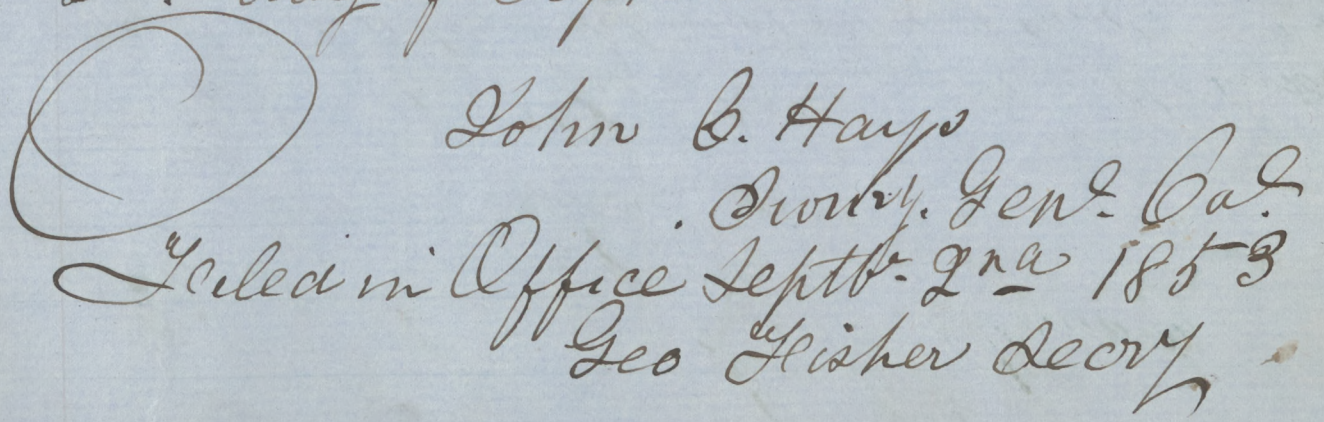 John C. Hays
Survy. Genl. Cal.
Filed in Office Septbr. 2nd 1853
Geo Fisher Secry